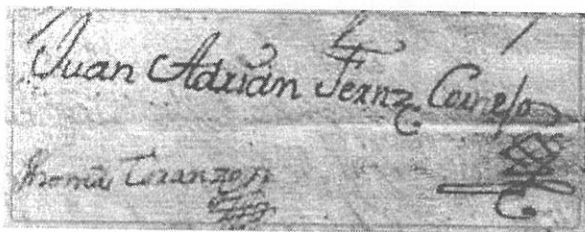 Juan Adrián Fernz Cornejo
Thomas Toranzon